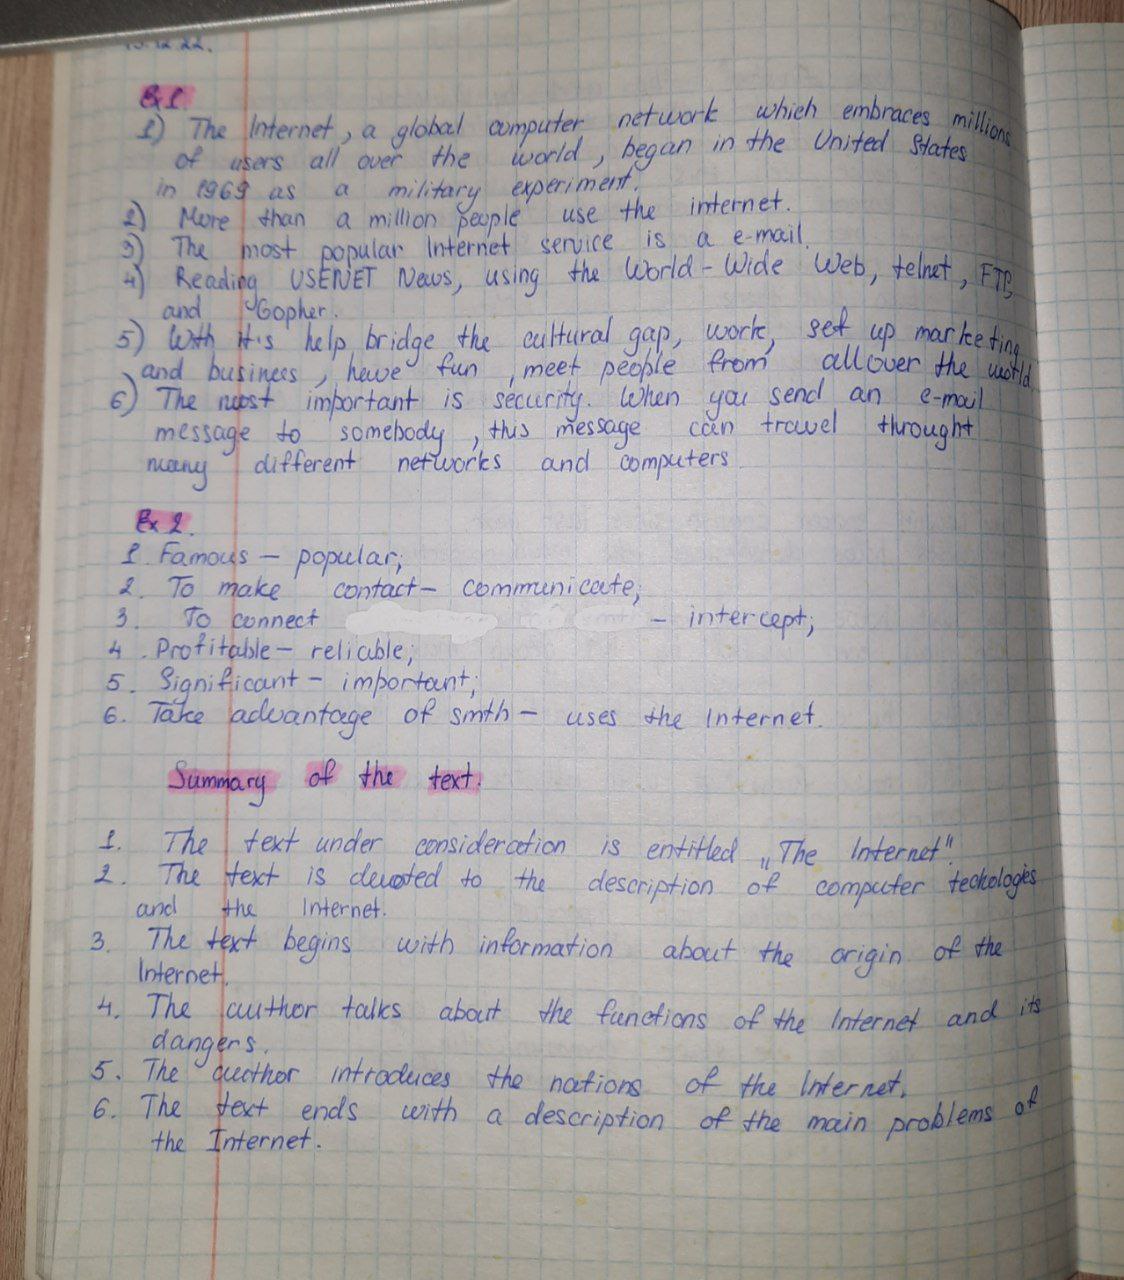 Ex 1
1) The Internet, a global computer network which embraces millions
of users all over the world, began in the United States
in 1969 as a military experiment.
2) More than a million people use the internet.
3) The most popular Internet service is a e-mail.
4) Reading USENET News, using the World-Wide Web, telnet, FTP,
and Gopher.
5) With it's help bridge the cultural gap, work, set up marketing
and business, have fun, meet people from all over the world.
6) The most important is security. When you send an e-mail
message to somebody, this message can travel throught
many different networks and computers
Ex 2.
1. Famous – popular;
2. To make contact – communicate;
3. To connect – intercept;
4. Profitable – reliable;
5. Significant – important;
6. Take advantage of smth – uses the Internet.
Summary of the text.
1. The text under consideration is entitled „The Internet".
2. The text is devoted to the description of computer teckologies
and the Internet.
3. The text begins with information about the origin of the
Internet.
4. The author talks about the functions of the Internet and its
dangers.
5. The author introduces the nations of the Internet.
6. The text ends with a description of the main problems of
the Internet.